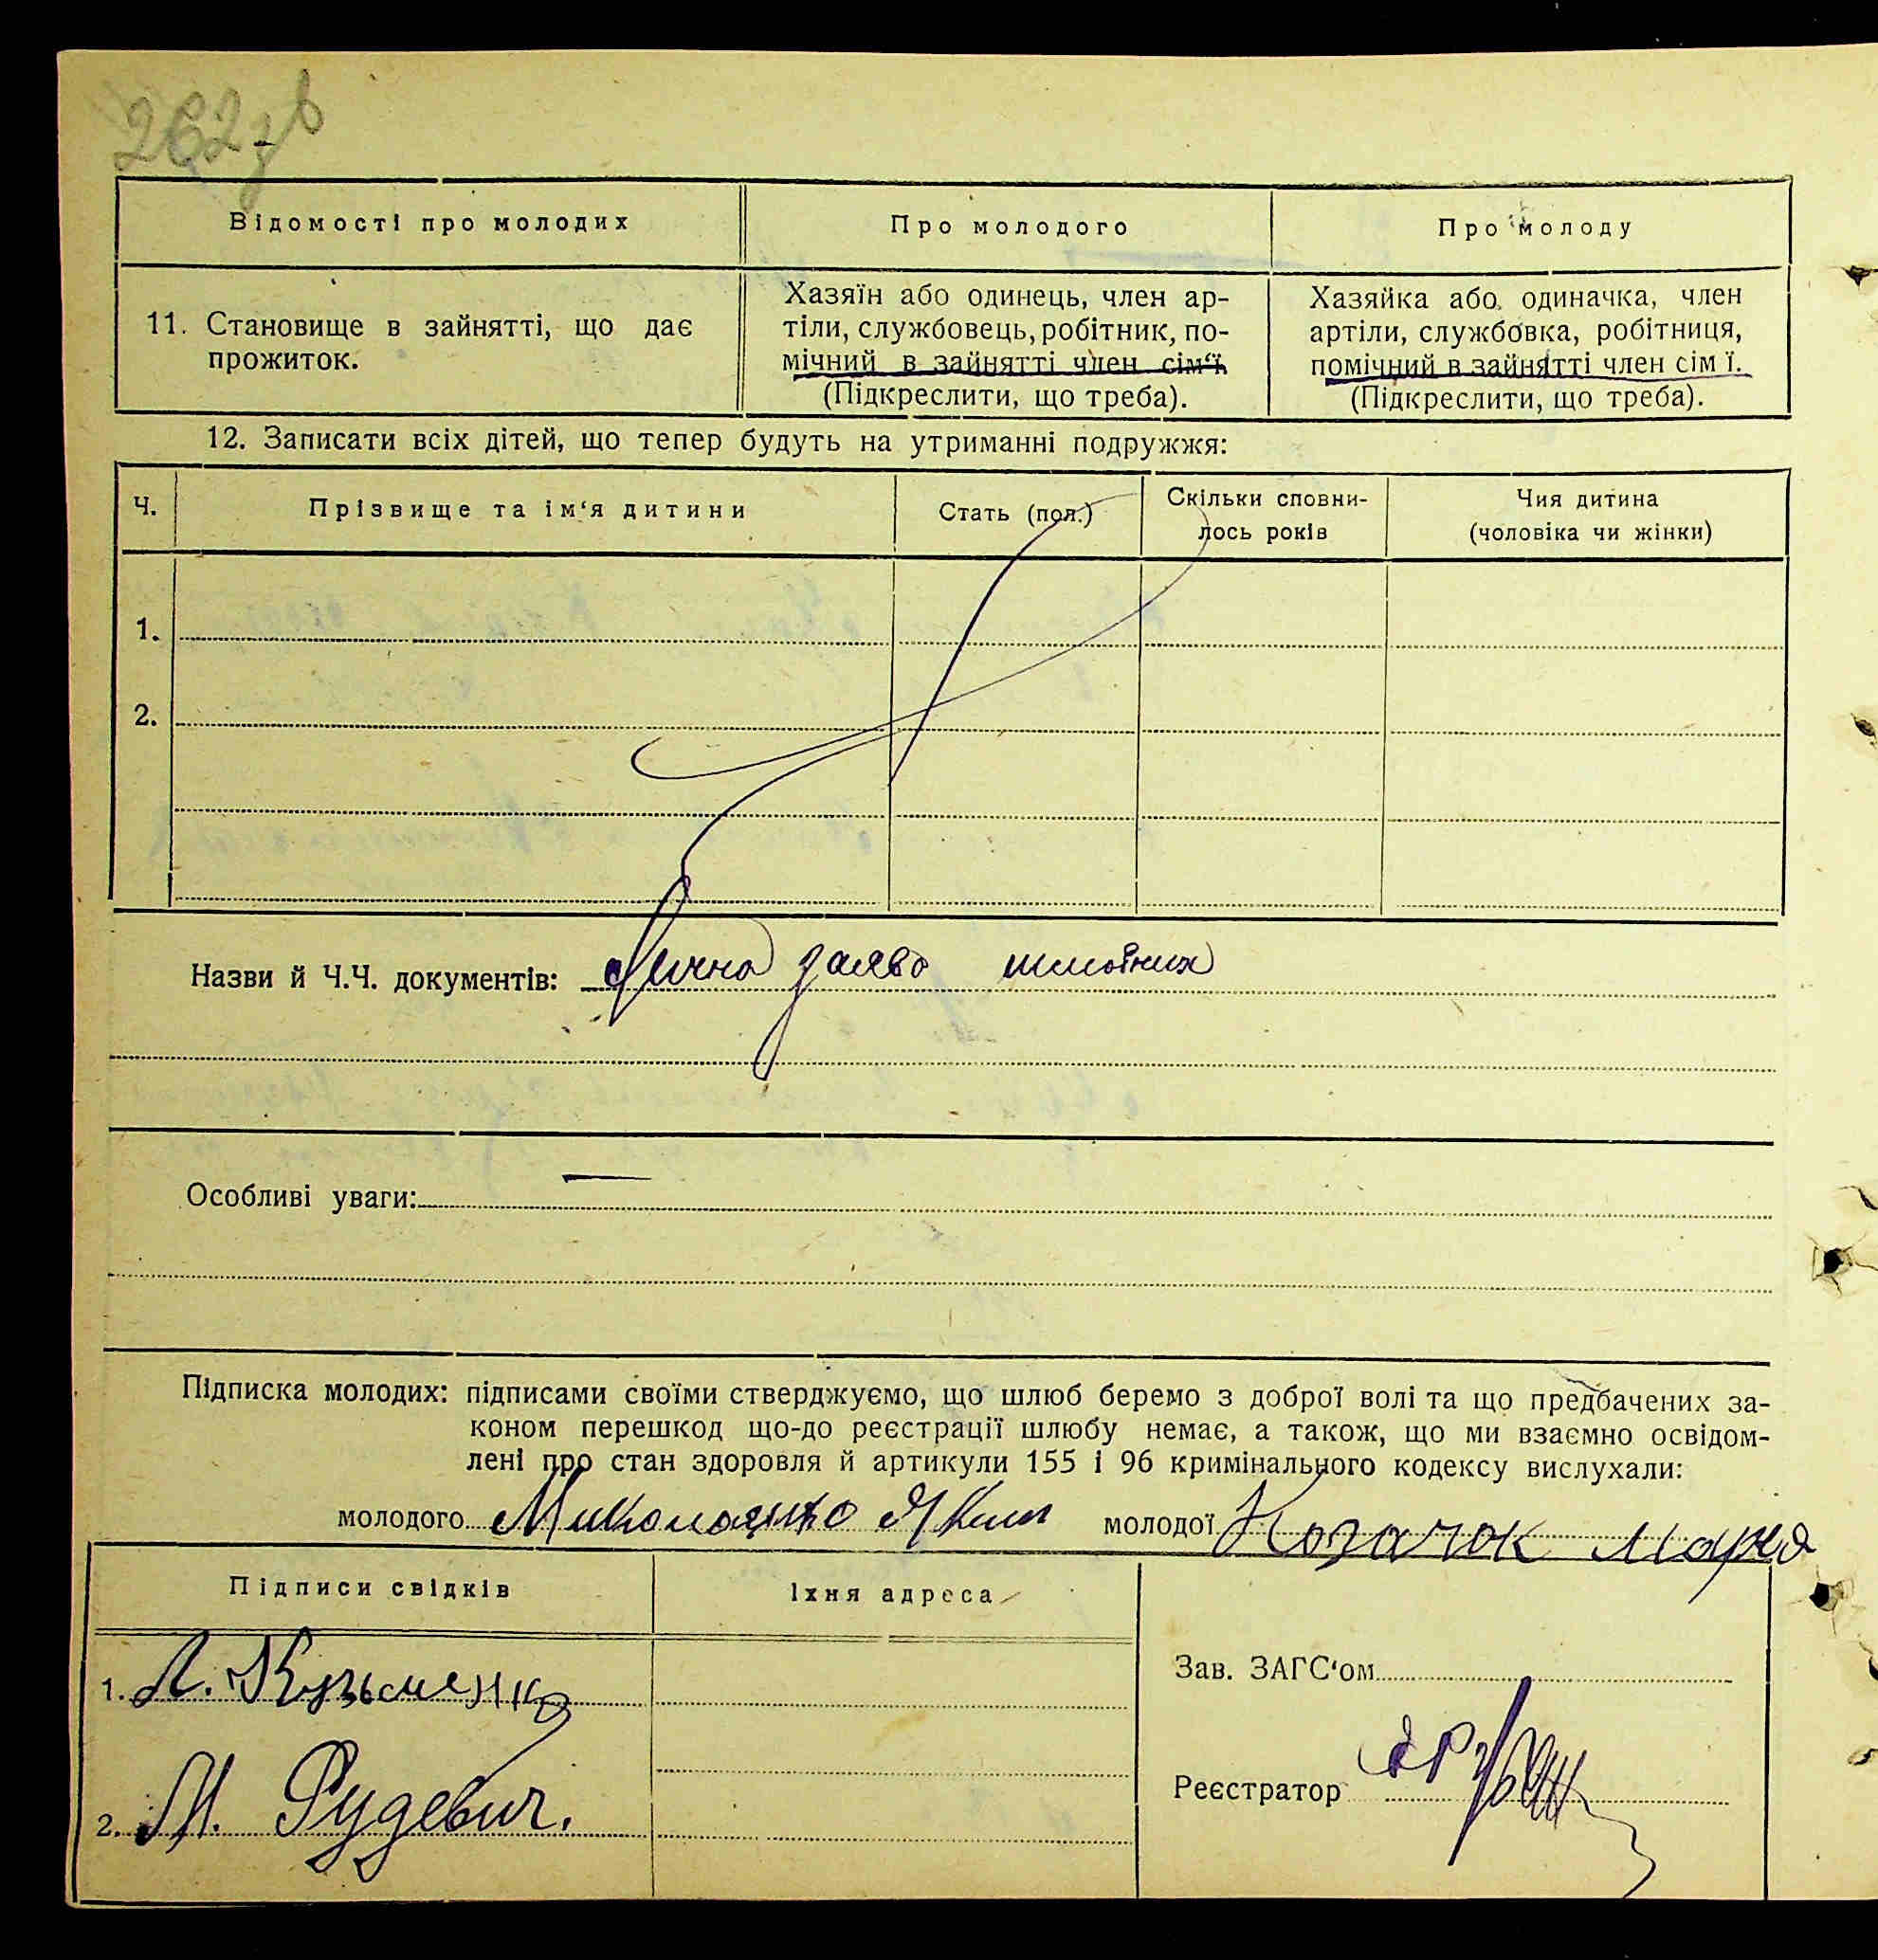 262зв
Відомості про молодих
Про молодого
Про молоду
11. Становище в зайнятті, що дає
прожиток.
Хазяїн або одинець, член ар-
тіли, службовець, робітник, по-
мічний в зайнятті член сім'ї.
(Підкреслити, що треба).
Хазяйка або одиначка, член
артіли, службовка, робітниця,
помічний в зайнятті член сім ї.
(Підкреслити, що треба).
12. Записати всіх дітей, що тепер будуть на утриманні подружжя:
Ч.
Прізвище та ім'я дитини
Стать (пол.)
Скільки сповни-
лось років
Чия дитина
(чоловіка чи жінки)
1.
2.
Назви й Ч.Ч. документів: Лична заява
Особливі уваги: —
Підписка молодих: підписами своїми стверджуємо, що шлюб беремо з доброї волі та що предбачених за-
коном перешкод що-до реєстрації шлюбу немає, а також, що ми взаємно освідом-
лені про стан здоровля й артикули 155 і 96 кримінального кодексу вислухали:
молодого Миколаєнко Яким молодої Козачок Мария
Підписи свідків
Їхня адреса
1. Л. Кузьменко
2. М. Рудевич.
Зав. ЗАГС'ом
Реєстратор